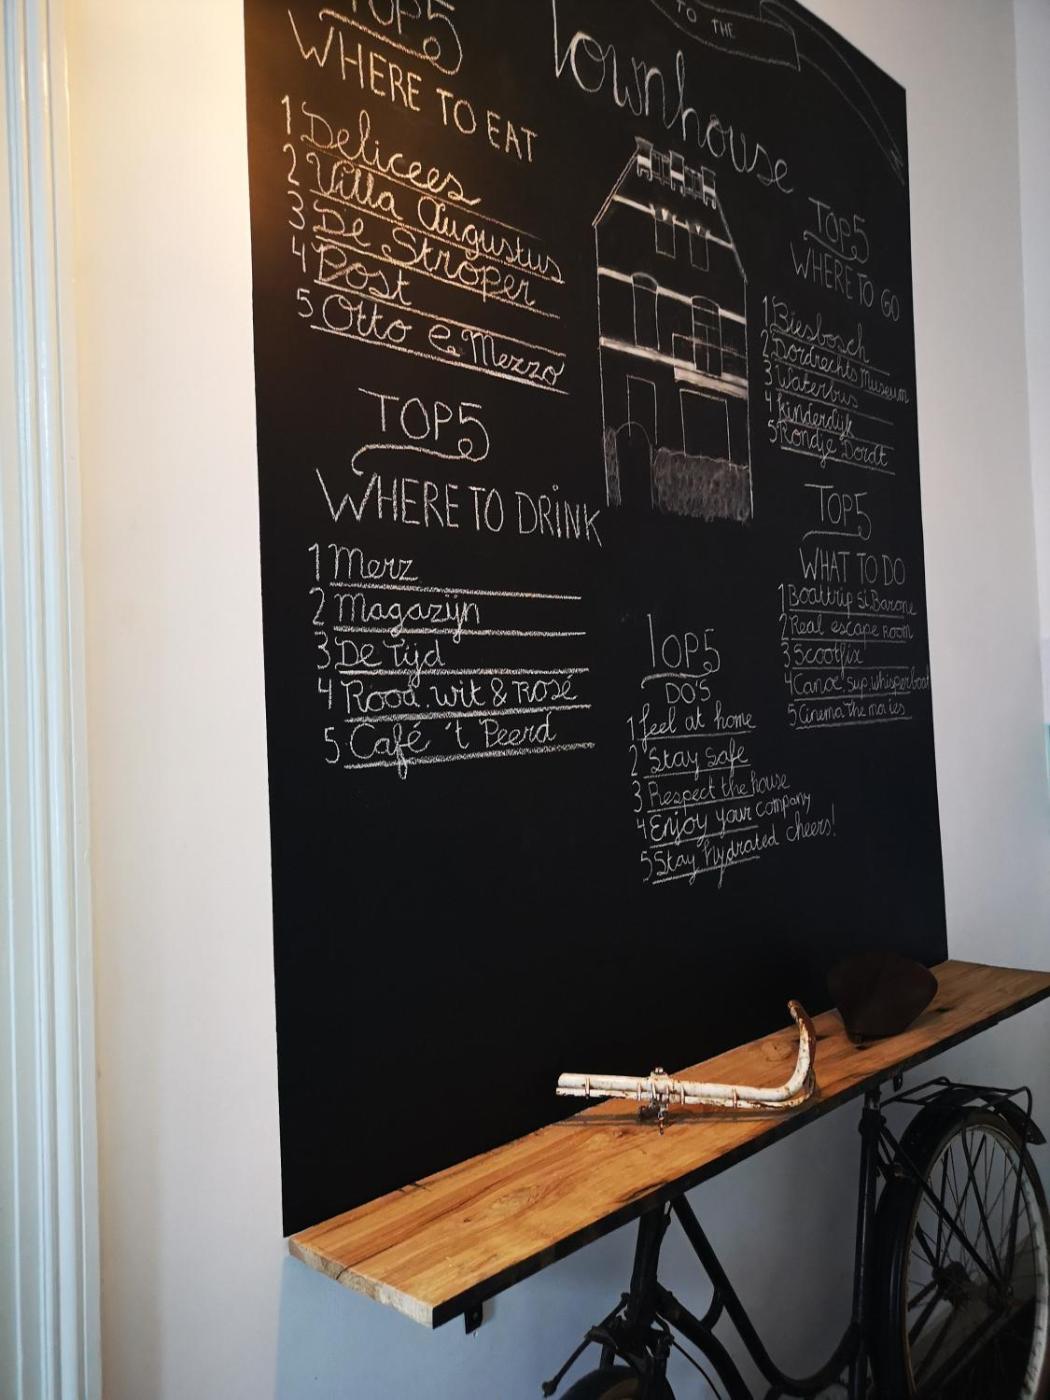 TO THE
Townhouse
TOP 5
WHERE TO EAT
1 Delicees
2 Villa Augustus
3 De Stroper
4 Post
5 Otto e Mezzo
TOP 5
WHERE TO DRINK
1 Merz
2 Magazijn
3 De Tijd
4 Rood, wit & Rosé
5 Café 't Peerd
TOP 5
DO'S
1 feel at home
2 Stay safe
3 Respect the house
4 Enjoy your company
5 Stay hydrated cheers!
TOP 5
WHERE TO GO
1 Biesbosch
2 Dordrechts Museum
3 Waterbus
4 Kinderdijk
5 Rondje Dordt
TOP 5
WHAT TO DO
1 Boattrip
2 Real escape Room
3 Scootfix
4 Canoe, sup, whisperboat
5 Cinema The